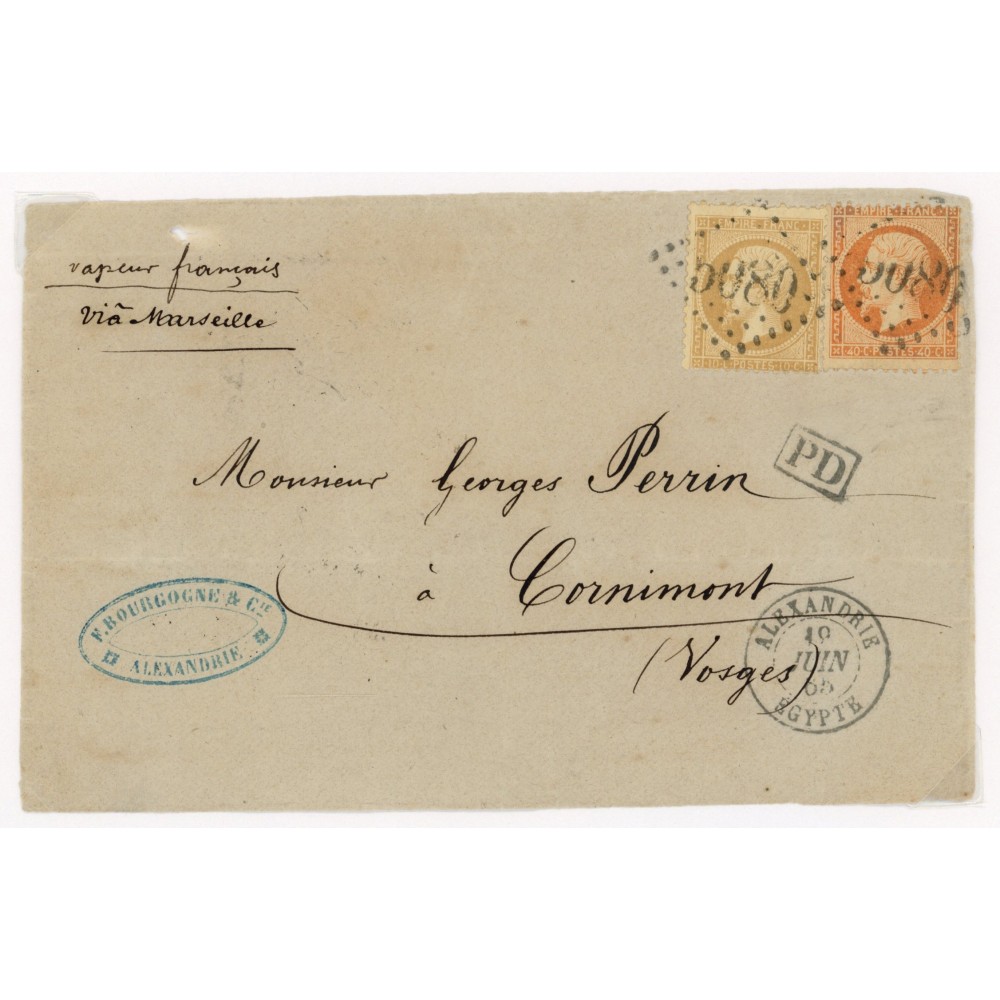 vapeur français
viâ Marseille
EMPIRE FRANC
10·C·POSTES·10·C
EMPIRE FRANC
40·C·POSTES·40·C
5080
5080
PD
Monsieur Georges Perrin
à Cornimont
(Vosges)
F. BOURGOGNE & CIE
ALEXANDRIE
ALEXANDRIE
19
JUIN
65
EGYPTE